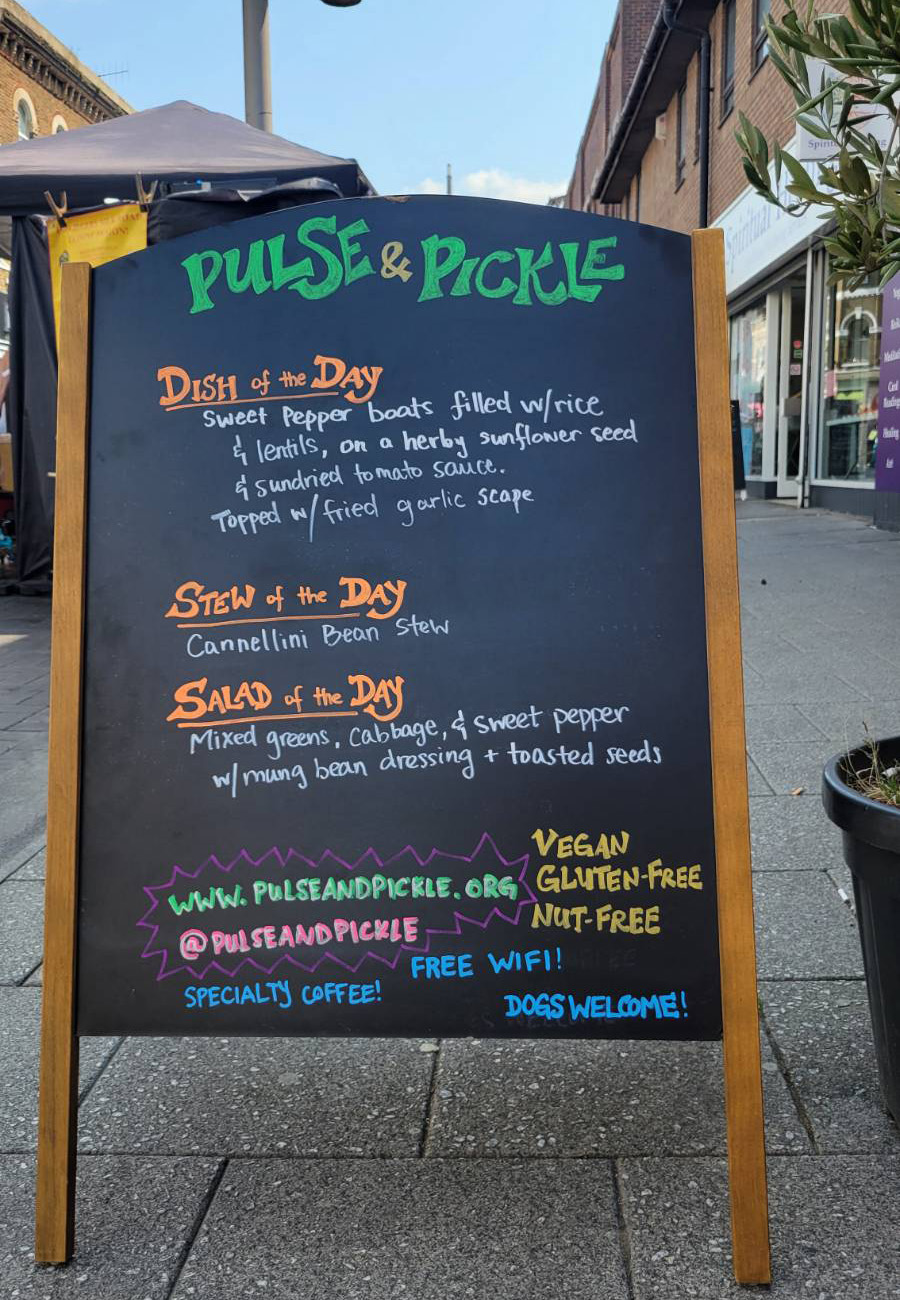 PULSE & PICKLE
DISH of the DAY
Sweet Pepper boats filled w/rice
& lentils, on a herby sunflower seed
& sundried tomato sauce.
Topped w/fried garlic scape
STEW of the DAY
Cannellini Bean Stew
SALAD of the DAY
Mixed greens, cabbage, & sweet pepper
w/mung bean dressing + toasted seeds
VEGAN
GLUTEN-FREE
NUT-FREE
WWW.PULSEANDPICKLE.ORG
@PULSEANDPICKLE
FREE WIFI!
SPECIALTY COFFEE!
DOGS WELCOME!
Spiritual